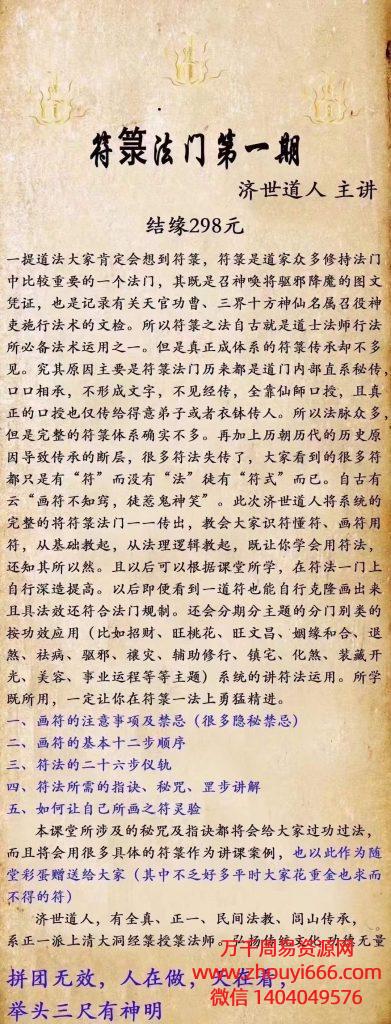 符箓法门第一期
济世道人 主讲
结缘298元
一提道法大家肯定会想到符箓，符箓是道家众多修持法门
中比较重要的一个法门，其既是召神唤将驱邪降魔的图文
凭证，也是记录有关天官功曹、三界十方神仙名属召役神
吏施行法术的文检。所以符箓之法自古就是道士法师行法
所必备法术运用之一。但是真正成体系的符箓传承却不多
见。究其原因主要是符箓法门历来都是道门内部直系秘传，
口口相承，不形成文字，不见经传，全靠仙師口授，且真
正的口授也仅传给得意弟子或者衣钵传人。所以法脉众多，
但是完整的符箓体系确实不多。再加上历朝历代的历史原
因导致传承的断层，很多符法失传了，大家看到的很多符
都只是有“符”而没有“法”徒有“符式”而已。自古有
云“画符不知窍，徒惹鬼神笑”。此次济世道人将系统的
完整的将符箓法门一一传出，教会大家识符懂符、画符用
符，从基础教起，从法理逻辑教起，既让你学会用符法，
还知其所以然。且以后可以根据课堂所学，在符法一门上
自行深造提高。以后即便看到一道符也能自行克隆画出来
且具法效还符合法门规制。还会分期分主题的分门别类的
按功效应用（比如招财、旺桃花、旺文昌、姻缘和合、退
煞、祛病、驱邪、禳灾、辅助修行、镇宅、化煞、装藏开
光、美容、事业运程等等主题）系统的讲符法运用。所学
既所用，一定让你在符箓一法上勇猛精进。
一、画符的注意事项及禁忌（很多隐秘禁忌）
二、画符的基本十二步顺序
三、符法的二十六步仪轨
四、符法所需的指诀、秘咒、罡步讲解
五、如何让自己所画之符灵验
本课堂所涉及的秘咒及指诀都将会给大家过功过法，
而且将会用很多具体的符箓作为讲课案例，也以此作为随
堂彩蛋赠送给大家（其中不乏好多平时大家花重金也求而
不得的符）
济世道人，有全真、正一、民间法教、闾山传承，
系正一派上清大洞经箓授箓法师。弘扬传统文化 功德无量
拼团无效，人在做，天在看，
举头三尺有神明
万千周易资源网
www.zhouyi666.com
微信 1404049576